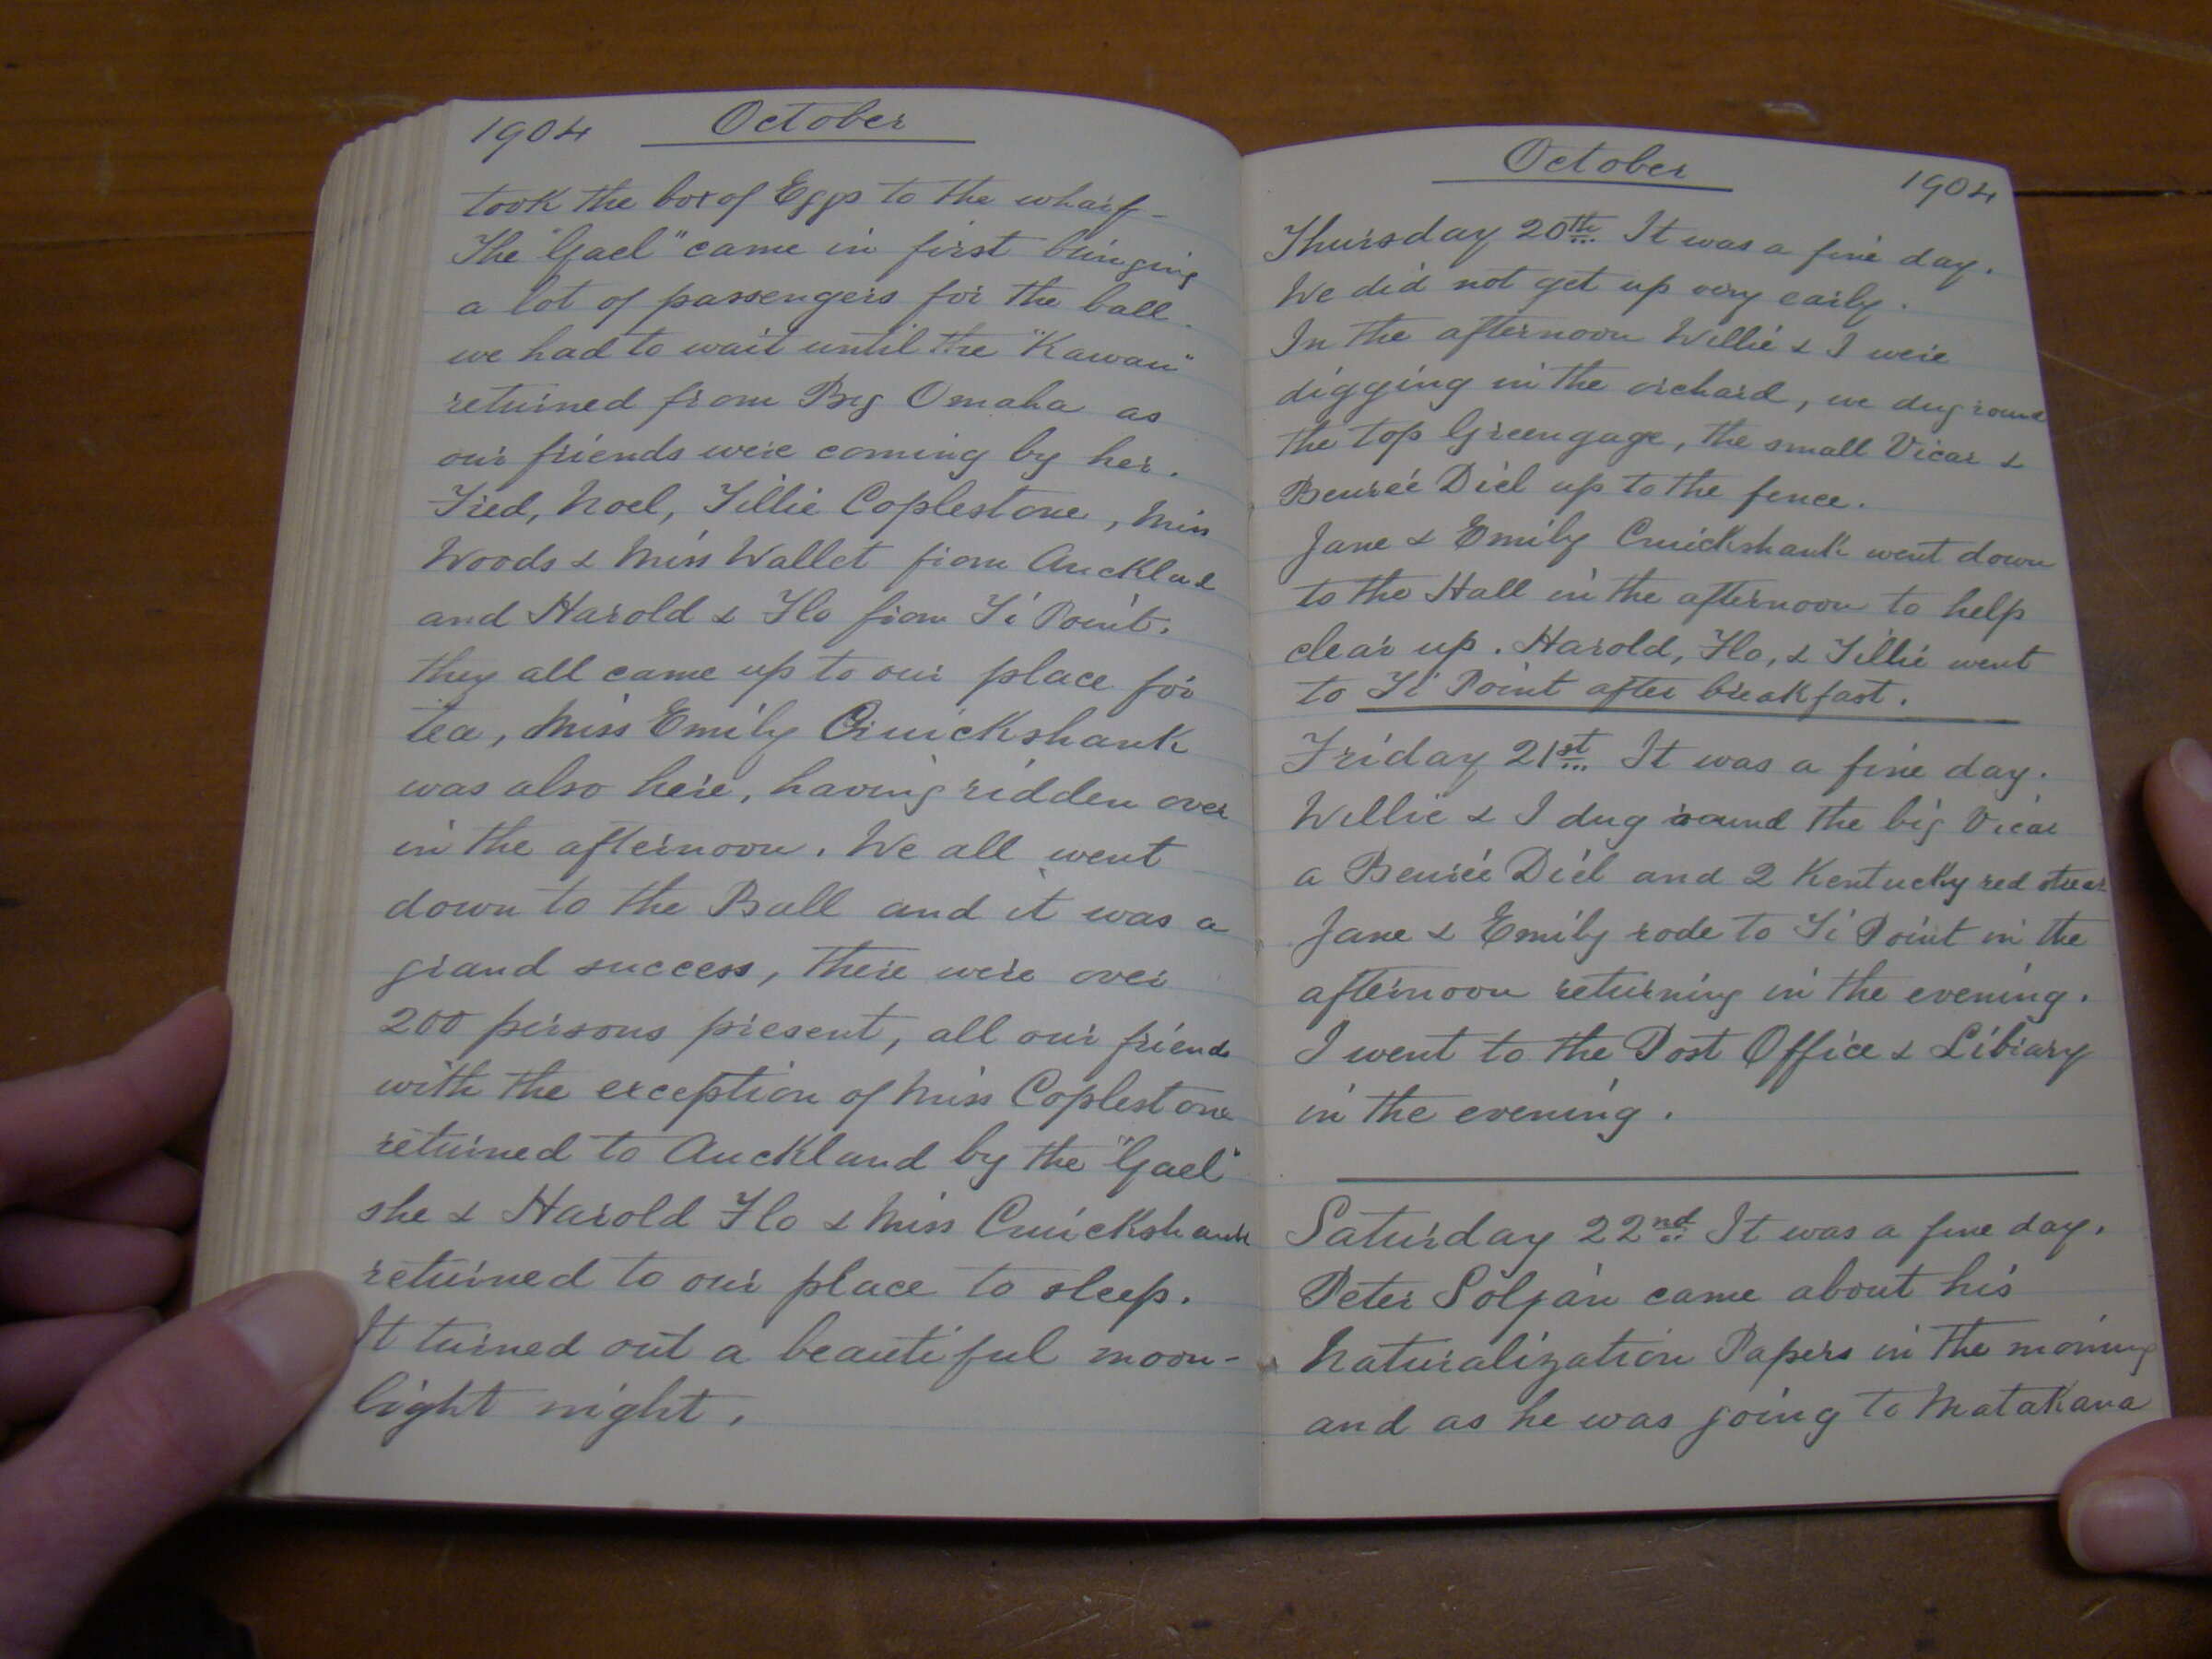 1904 October
took the box of Eggs to the wharf -
The "Gael" came in first bringing
a lot of passengers for the ball.
we had to wait until the "Kawau"
returned from Big Omaha as
our friends were coming by her.
Fred, Noel, Tillie Coplestone, Miss
Woods & Miss Wallet from Auckland
and Harold & Flo from Ti Point.
they all came up to our place for
tea, Miss Emily Cruickshank
was also here, having ridden over
in the afternoon. We all went
down to the Ball and it was a
grand success, there were over
200 persons present, all our friends
with the exception of Miss Coplestone
returned to Auckland by the "Gael"
she & Harold Flo & Miss Cruickshank
returned to our place to sleep.
It turned out a beautiful moon-
light night.
October 1904
Thursday 20th It was a fine day.
We did not get up very early.
In the afternoon Willie & I were
digging in the orchard, we dug round
the top Greengage, the small Vicar &
Beurré Diel up to the fence.
Jane & Emily Cruickshank went down
to the Hall in the afternoon to help
clear up. Harold, Flo, & Tillie went
to Ti Point after breakfast.
Friday 21st It was a fine day.
Willie & I dug round the big Vicar
a Beurré Diel and 2 Kentucky red streak
Jane & Emily rode to Ti Point in the
afternoon returning in the evening.
I went to the Post Office & Library
in the evening.
Saturday 22nd It was a fine day.
Peter Soljan came about his
Naturalization Papers in the morning
and as he was going to Matakana